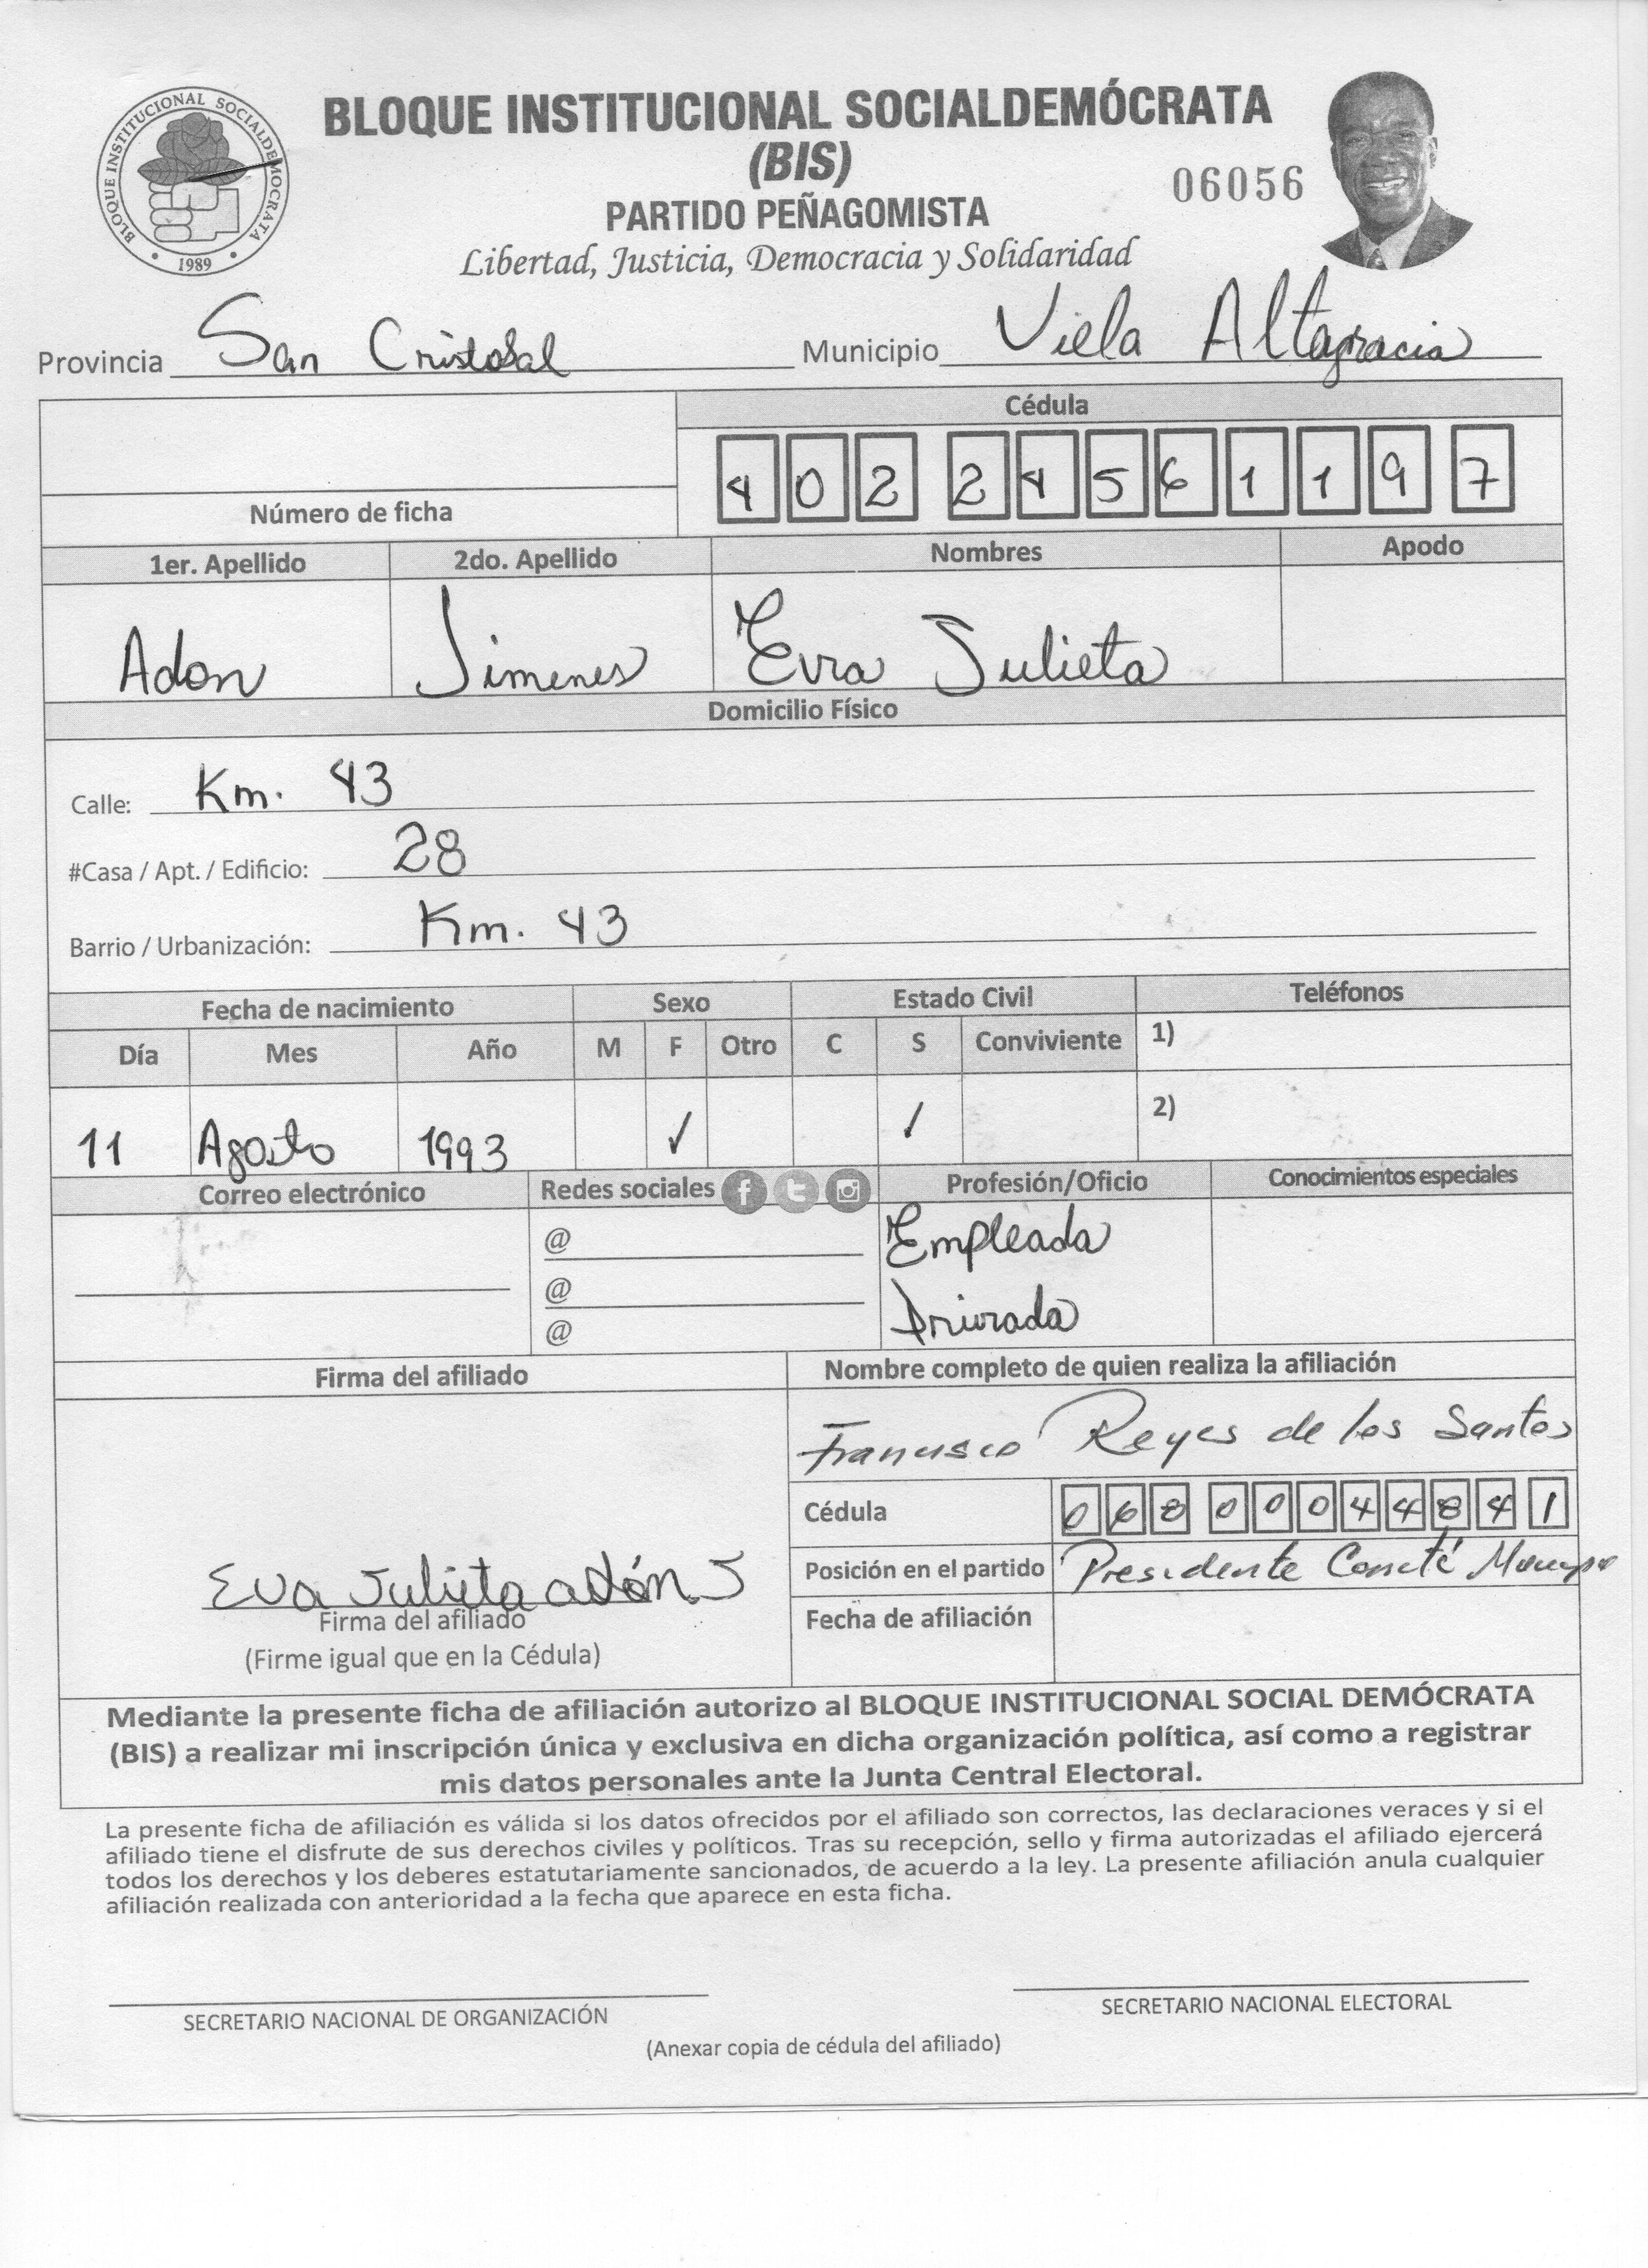 BLOQUE INSTITUCIONAL SOCIALDEMOCRATA
1989
BLOQUE INSTITUCIONAL SOCIALDEMÓCRATA
(BIS)
06056
PARTIDO PEÑAGOMISTA
Libertad, Justicia, Democracia y Solidaridad
Provincia San Cristobal Municipio Viella Altagracia
Cédula
402 2456119 7
Número de ficha
1er. Apellido 2do. Apellido Nombres Apodo
Adon Jimenes Evra Julieta
Domicilio Físico
Calle: Km. 43
#Casa / Apt. / Edificio: 28
Barrio / Urbanización: Km. 43
Fecha de nacimiento Sexo Estado Civil Teléfonos
Día Mes Año M F Otro C S Conviviente 1)
11 Agosto 1993 ✓ ✓ 2)
Correo electrónico Redes sociales Profesión/Oficio Conocimientos especiales
@ Empleada
@ Privada
@
Firma del afiliado Nombre completo de quien realiza la afiliación
Francisco Reyes de los Santos
Cédula 068 0004484 1
Eva Julieta adón J Posición en el partido Presidente Comité
Firma del afiliado Fecha de afiliación
(Firme igual que en la Cédula)
Mediante la presente ficha de afiliación autorizo al BLOQUE INSTITUCIONAL SOCIAL DEMÓCRATA
(BIS) a realizar mi inscripción única y exclusiva en dicha organización política, así como a registrar
mis datos personales ante la Junta Central Electoral.
La presente ficha de afiliación es válida si los datos ofrecidos por el afiliado son correctos, las declaraciones veraces y si el
afiliado tiene el disfrute de sus derechos civiles y políticos. Tras su recepción, sello y firma autorizadas el afiliado ejercerá
todos los derechos y los deberes estatutariamente sancionados, de acuerdo a la ley. La presente afiliación anula cualquier
afiliación realizada con anterioridad a la fecha que aparece en esta ficha.
SECRETARIO NACIONAL DE ORGANIZACIÓN SECRETARIO NACIONAL ELECTORAL
(Anexar copia de cédula del afiliado)